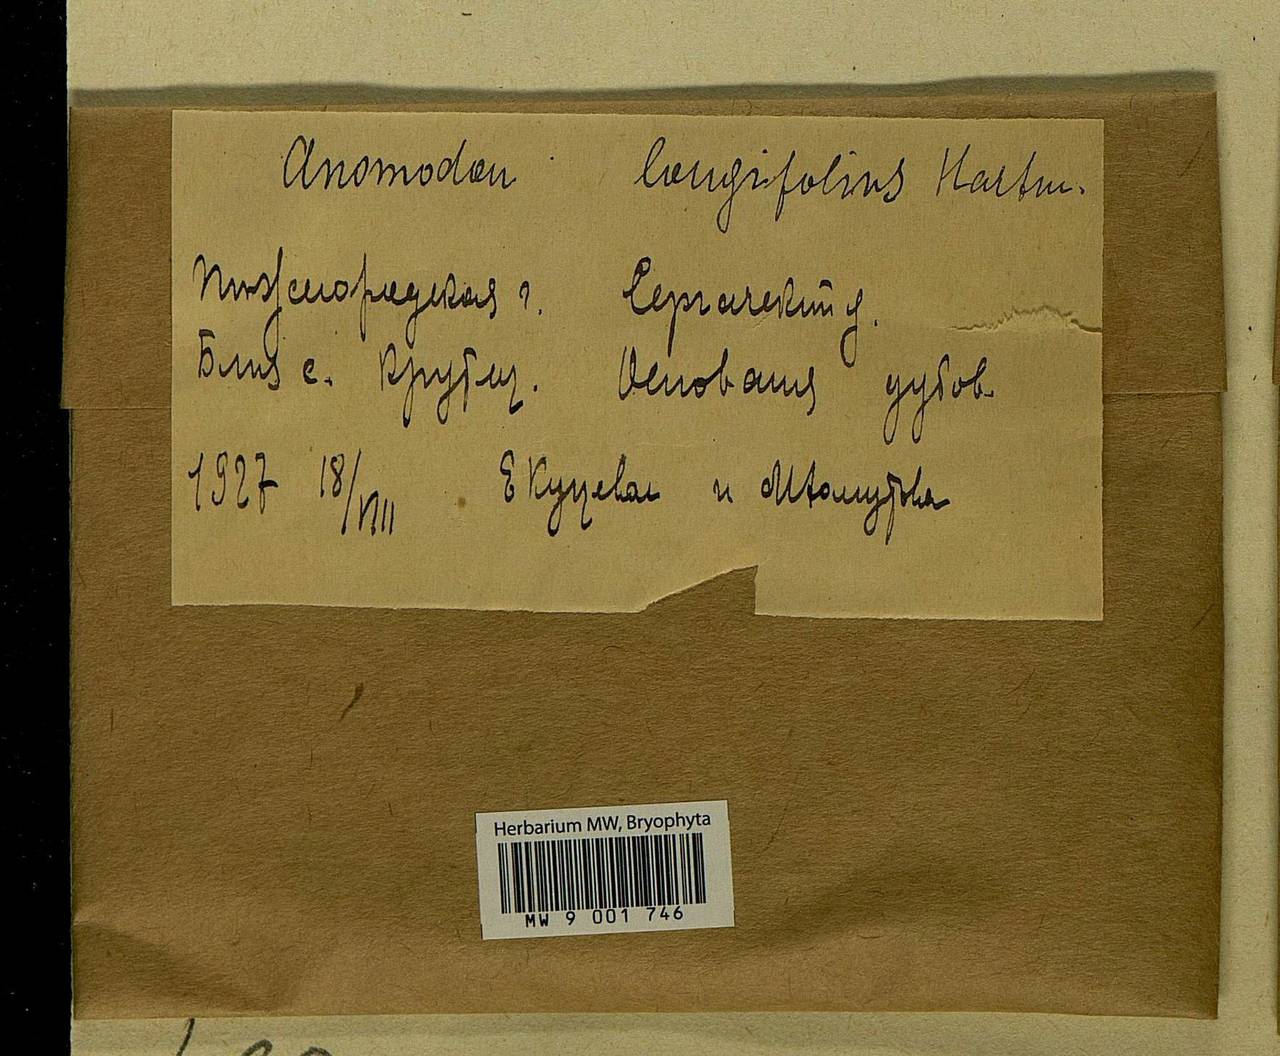 Anomodon longifolius Hartm.
Нижегородская г. Сергачский у.
Близ с. Основания дубов
1927 18/VIII Е Куцева и
Herbarium MW, Bryophyta
MW 9 001 746